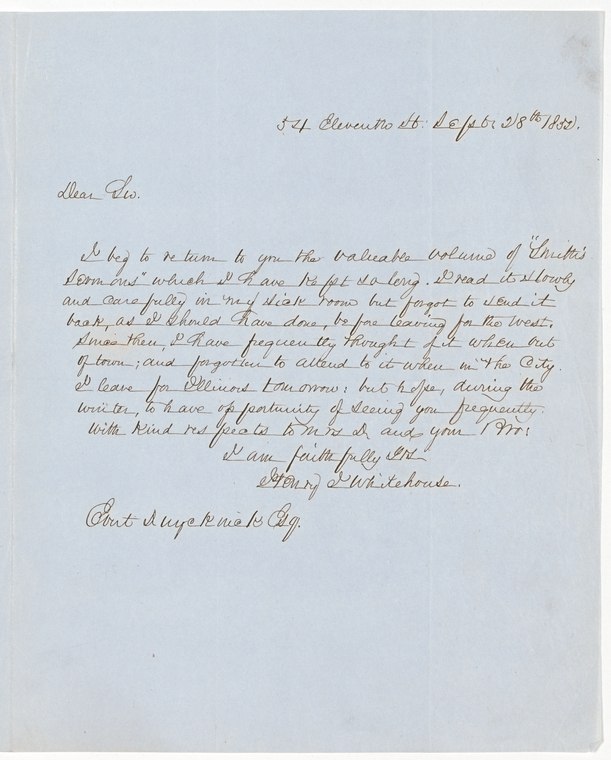 54 Eleventh St. Sept. 28th 1852.
Dear Sir.
I beg to return to you the valuable volume of "Smith's
Sermons" which I have kept so long. I read it slowly
and carefully in my sick room but forgot to send it
back, as I should have done, before leaving for the West.
Since then, I have frequently thought of it when out
of town; and forgotten to attend to it when in the City.
I leave for Illinois tomorrow: but hope, during the
winter, to have opportunity of seeing you frequently.
With kind respects to Mrs D. and your Bro:
I am faithfully Yrs
Henry J Whitehouse.
Evert Duyckinck Esq.